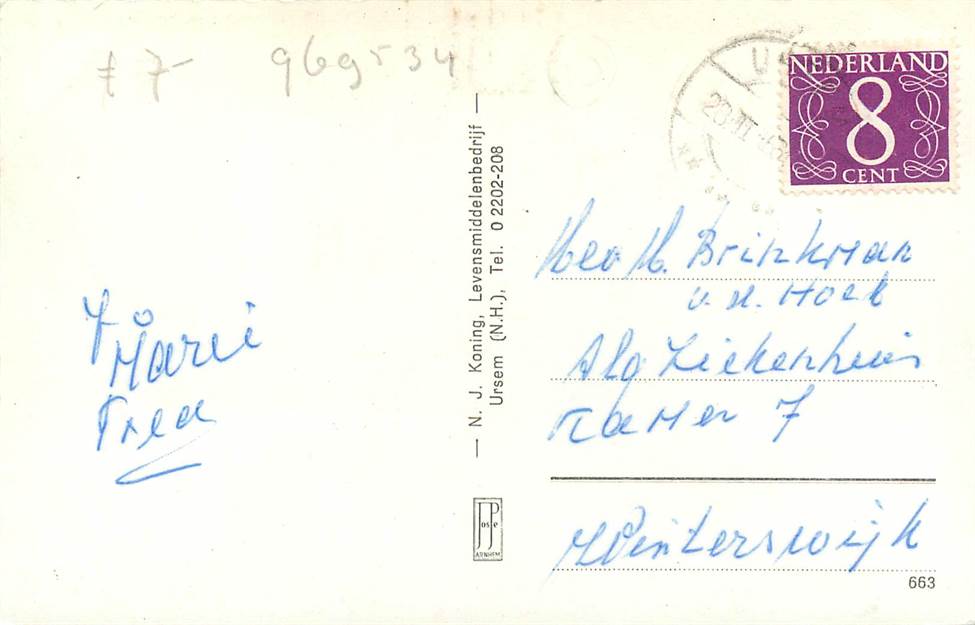 £ 7- 969534
NEDERLAND
8
CENT
20.III
N. J. Koning, Levensmiddelenbedrijf
Ursem (N.H.), Tel. 0 2202-208
Mev M. Brinkman
v. d. Hoek
Alg Ziekenhuis
Kamer 7
Winterswijk
Marie
Fred
JosPé
ARNHEM
663